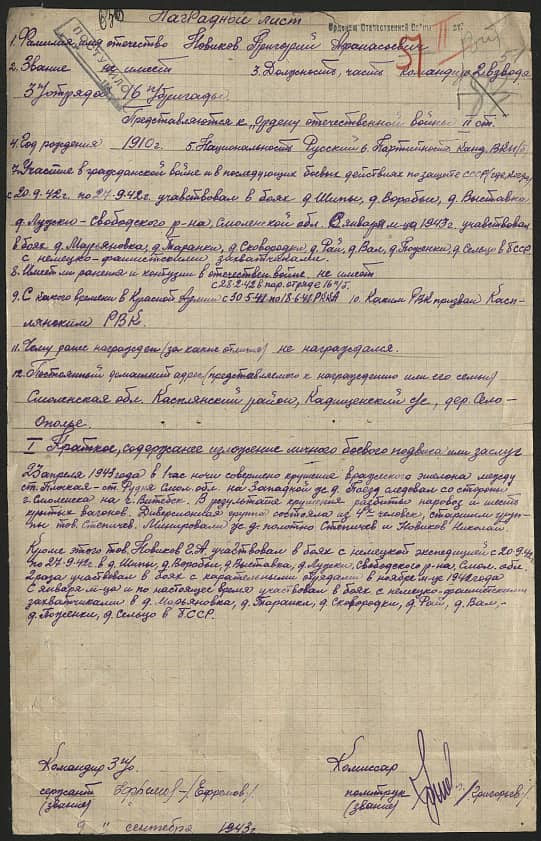 Наградной лист
Орденом Отечественной Войны II
1. Фамилия имя отчество Новиков Григорий Афанасьевич
2. Звание не имеет 3. Должность, часть командир 2 взвода
3 ч/отряда 16 ч/бригады.
Представляются к "Ордену отечественной войны II ст.
4. Год рождения 1910 г. 5. Национальность Русский 6. Партийность канд. ВКП/б.
7. Участие в гражданской войне и в последующих боевых действиях по защите СССР (где, когда)
с 20.9.42г. по 27.9.42г. учавствовал в боях д. Шипы, д. Воробьи, д. Выставка
д. Лудски - Свободского р-на, Смоленской обл. С января м-ца 1943г. учавствовал
в боях д. Марьяновка, д. Таранки, д. Сковородки, д. Рай, д. Вал, д. Поженки, д. Сельцо в БССР
с немецко-фашистскими захватчиками.
8. Имеет ли ранения и контузии в отечествен. войне. не имеет
с 28.2.42 в пар. отряде 16 ч/б.
9. С какого времени в Красной Армии с 30.5.41 по 18.6.41 РККА 10. Каким РВК призван Касп-
лянским РВК.
11. Чему ранее награжден (за какие отличия) не награждался.
12. Постоянный домашний адрес (представляемого к награждению или его семьи)
Смоленская обл. Каспянский район, Кадищенский с/с, дер. Село-
Ополье.
I Краткое, содержание изложение личного боевого подвига или заслуг
23 апреля 1943 года в 1 час ночи совершено крушение вражеского эшелона между
ст. - ст. Рудня Смол. обл. на Западной ж.д. Поезд следовал со стороны
г. Смоленска на г. Витебск. В результате крушения разбито паровоз и шесть
крытых вагонов. Диверсионная группа состояла из 4-х человек, старшим груп-
пы тов. Степичев. Минировали ж.д. полотно Степичев и Новиков Николай.
Кроме этого тов. Новиков Г.А. участвовал в боях с немецкой экспедицией с 20.9.42
по 27.9.42г. в д. Шипы, д. Воробьи, д. Выставка, д. Лудски, Свободского р-на, Смол. обл.
2 раза участвовал в боях с карательными отрядами в ноябре м-це 1942 года
С января м-ца и по настоящее время участвовал в боях с немецко-фашистскими
захватчиками в д. Марьяновка, д. Таранки, д. Сковородки, д. Рай, д. Вал, -
д. Поженки, д. Сельцо в БССР.
Командир 3 ч/о. Комиссар
сержант /Ефремов/ политрук /Григорьев/
(звание) (звание)
9 " сентября 1943г.